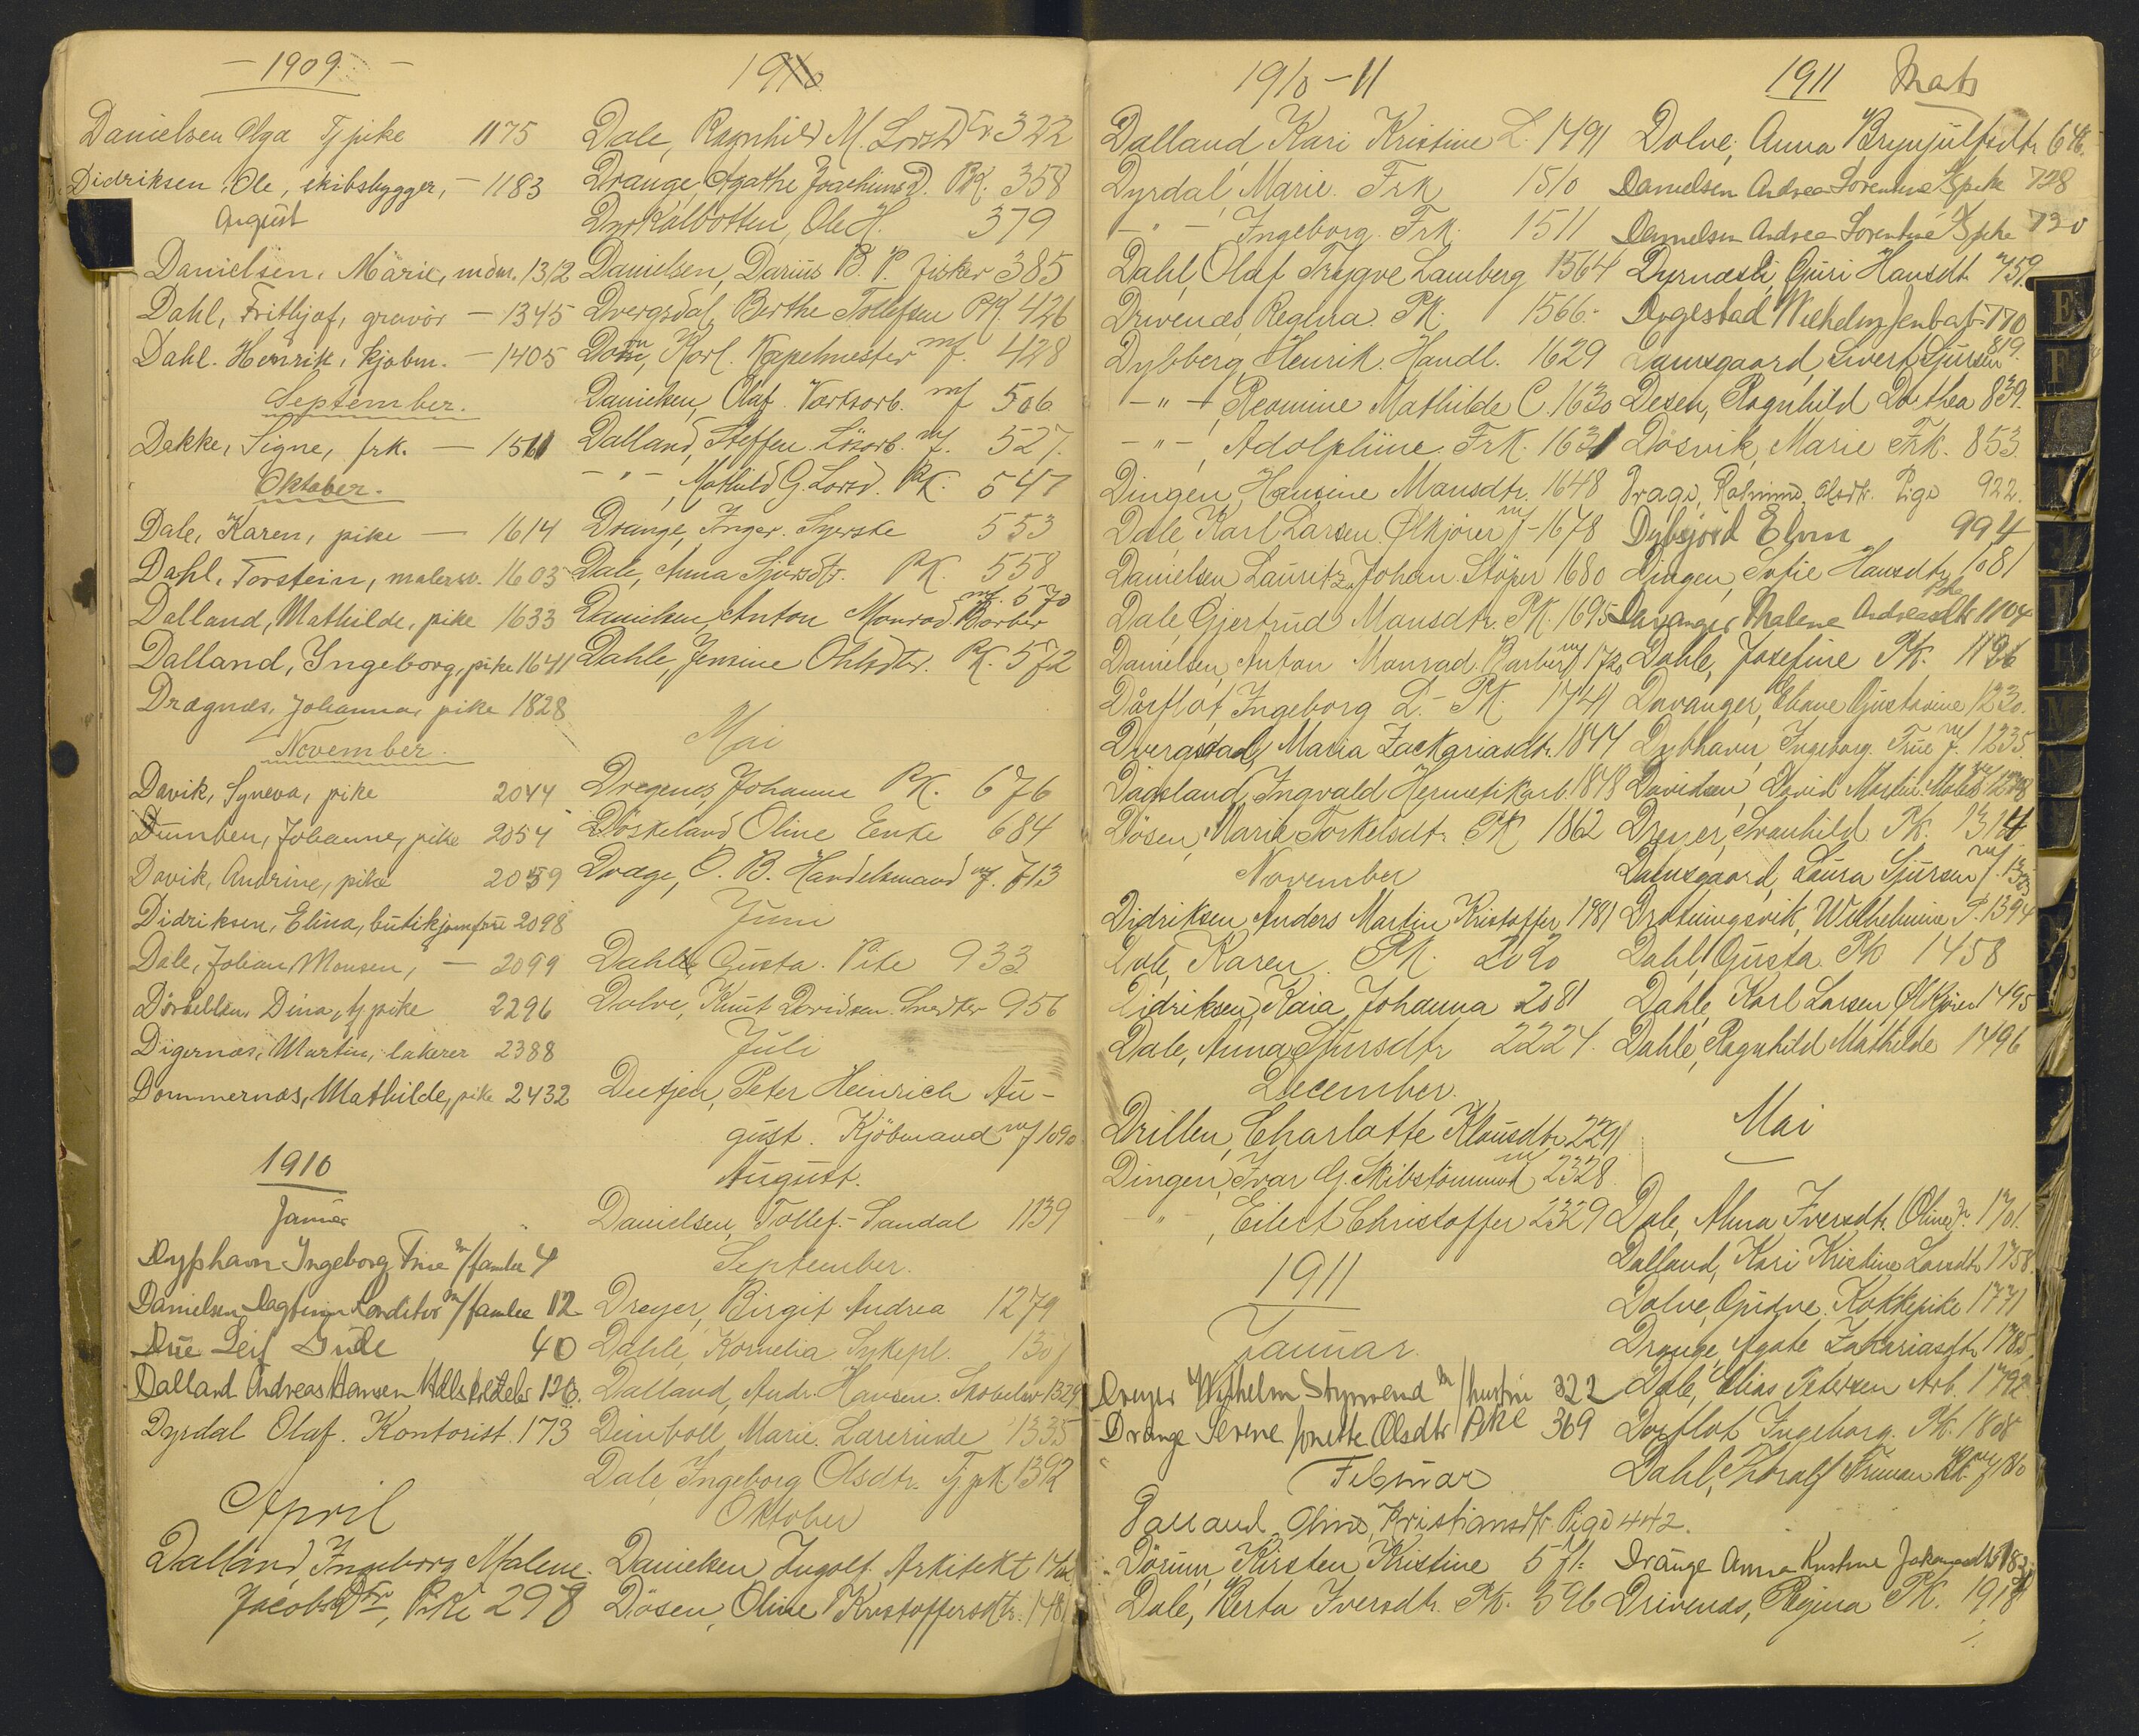 — 1909 —
Danielsen Olga Tj pike 1175
Didriksen, Ole, skibsbygger, — 1183
August
Danielsen, Marie, 1312
Dahl, Frithjof, gravör — 1345
Dahl. Henrik, kjøbm. — 1405
September.
Dekke, Signe, frk. — 1511
Oktober.
Dale, Karen, pike — 1614
Dahl, Torstein, malersv. 1605
Dalland, Mathilde, pike 1633
Dalland, Ingeborg, pike 1641
Dragnæs, Johanna, pike 1828
November.
Davik, Syneva, pike 2044
Dumben, Johanne, pike 2054
Davik, Andrine, pike 2059
Didriksen, Elina, butikjomfru 2098
Dale, Johan Monsen, — 2099
Dina, tj pike 2296
Digernæs, Martin, lakerer 2388
Dommernæs, Mathilde, pike 2432
1910
Januar
Dyphavn Ingeborg Frue m/familie 4
Danielsen Konditor m/familie 12
Due Leif 40
Dalland Andreas Hansen 126.
Dyrdal Olaf. Kontorist. 173
April
Dalland, Ingeborg Malene
Jacobsdtr, Pike 298
1910
Dale, Ragnhild M. 322
Drange, Agathe Joachimsd. PK. 358
Dyrkolbotten, Ole H. 379
Danielsen, Darius B. P. fisker 385
Dvergsdal, Berthe Tollefsen PK 426
Karl. Kapelmester mf. 428
Danielsen, Olaf. mf 506
Dalland, Steffen Lösarb. mf. 527.
— " — , Mathild G. Larsd. PK. 547
Drange, Inger. Syerske 553
Dale, Anna Sjursdtr. PK. 558
Danielsen, Anton Monrad Barber mf. 570
Dahle, Jensine Ohlsdtr. PK. 572
Mai
Dregnes, Johanne PK. 676
Döskeland, Oline Enke 684
Drage, O. B. Handelsmand mf. 713
Juni
Dahle, Gusta. Pike 933
Dolve, Knut Davidsen. Snedker 956
Juli
Deetjen, Peter Heinrich Au-
gust. Kjöbmand mf 1090
August.
Danielsen, Tollef. - Sandal 1139
September.
Dreyer, Birgit Andrea 1279
Dahle, Kornelia Sykepl.
Dalland, Andr. Hansen. 1329
Deinboll Marie. Lærerinde 1335
Dale, Ingeborg Olsdtr. Tj pk 1392
Oktober
Danielsen Ingolf. Arkitekt
Dösen, Oline Kristoffersdtr. 1481
1910-11
Dalland, Kari Kristine L. 1491
Dyrdal, Marie. Frk 1510
— " — , Ingeborg. Frk. 1511
Dahl, Olaf Trygve Lamberg 1564
Drivenæs Regina. PK. 1566.
Dybberg, Henrik. Handl. 1629
— " — , Mathilde C. 1630
— " — , Adolphine. Frk. 1631
Dingen, Hansine Mansdtr. 1648
Dale, Karl Larsen. Ølkjører mf - 1678
Danielsen Lauritz Johan. Støper 1680
Dale, Gjertrud Mansdtr. PK. 1695
Danielsen, Anton Monrad. Barber mf 1720
Dårflot, Ingeborg L. - PK. 1741
Dvergsdal, Maria Zackariasdtr. 1844
Ingvald 1848
Dösen, Marie Torkelsdtr. PK 1862
November
Didriksen, Anders Martin Kristoffer 1981
Dale, Karen. PK. 2020
Didriksen, Kaia Johanna 2081
Dale, Anna Sjursdtr 2224.
December.
Drillen, Charlotte Klausdtr. 2291
Dingen, Ivar G. Skibstömmerm 2328.
— " — , Eilert Christoffer 2329
1911
Januar.
Dreyer Wilhelm Styrmend m/hustru 322
Drange Serene Jonette Olsdtr Pike 369
Februar
Dalland, Oline, Kristiansdtr. Pige 442.
Dörum, Kirsten Kristine 571.
Dale, Berta Iversdtr. PK. 596
1911 Mats
Dolve, Anna Brynjulfsdtr. 646.
Danielsen Andrea Lorentine Tj pike 728
Danielsen Andrea Lorentine Tj pike 730
Dyrnæsli, Guri Hansdt. 759.
Dogestad Wilhelm 770
Damsgaard, Sivert Sjursen 819.
Dexen, Ragnhild Dorthea 839.
Dosvik, Marie Frk. 853.
Drage, Olsdtr. Pige 922.
Dybsjord Elern 994
Dingen, Sofie Hansdtr 1081
Davanger Malene Andreasdtr Pike 1104
Dahle, Josefine PK. 1126
Davanger, Gustavine 1230.
Dybhavn, Ingeborg. Frue mf. 1235.
Davidsen, David Martin.
Dreyer, Svanhild PK. 1314
Damsgaard, Laura Sjursen mf.
Drotningsvik, Wilhelmine P. 1394
Dahl, Gusta. PK 1458
Dahle, Karl Larsen, Ølkjörer 1495
Dahle, Ragnhild Mathilde 1496
Mai
Dale, Anna Iversdtr. 1701.
Dalland, Kari Kristine Larsdtr 1758.
Dolve, Gudve. Kokkepike 1771
Drange, Agate Zakariasdtr. 1785.
Dale, Elias Petersen Arb. 1792
Dorflot Ingeborg. PK. 1808
Dahl, Thoralf
Drange Anna Kristine
Drivenæs, Regina PK. 1918
E
F